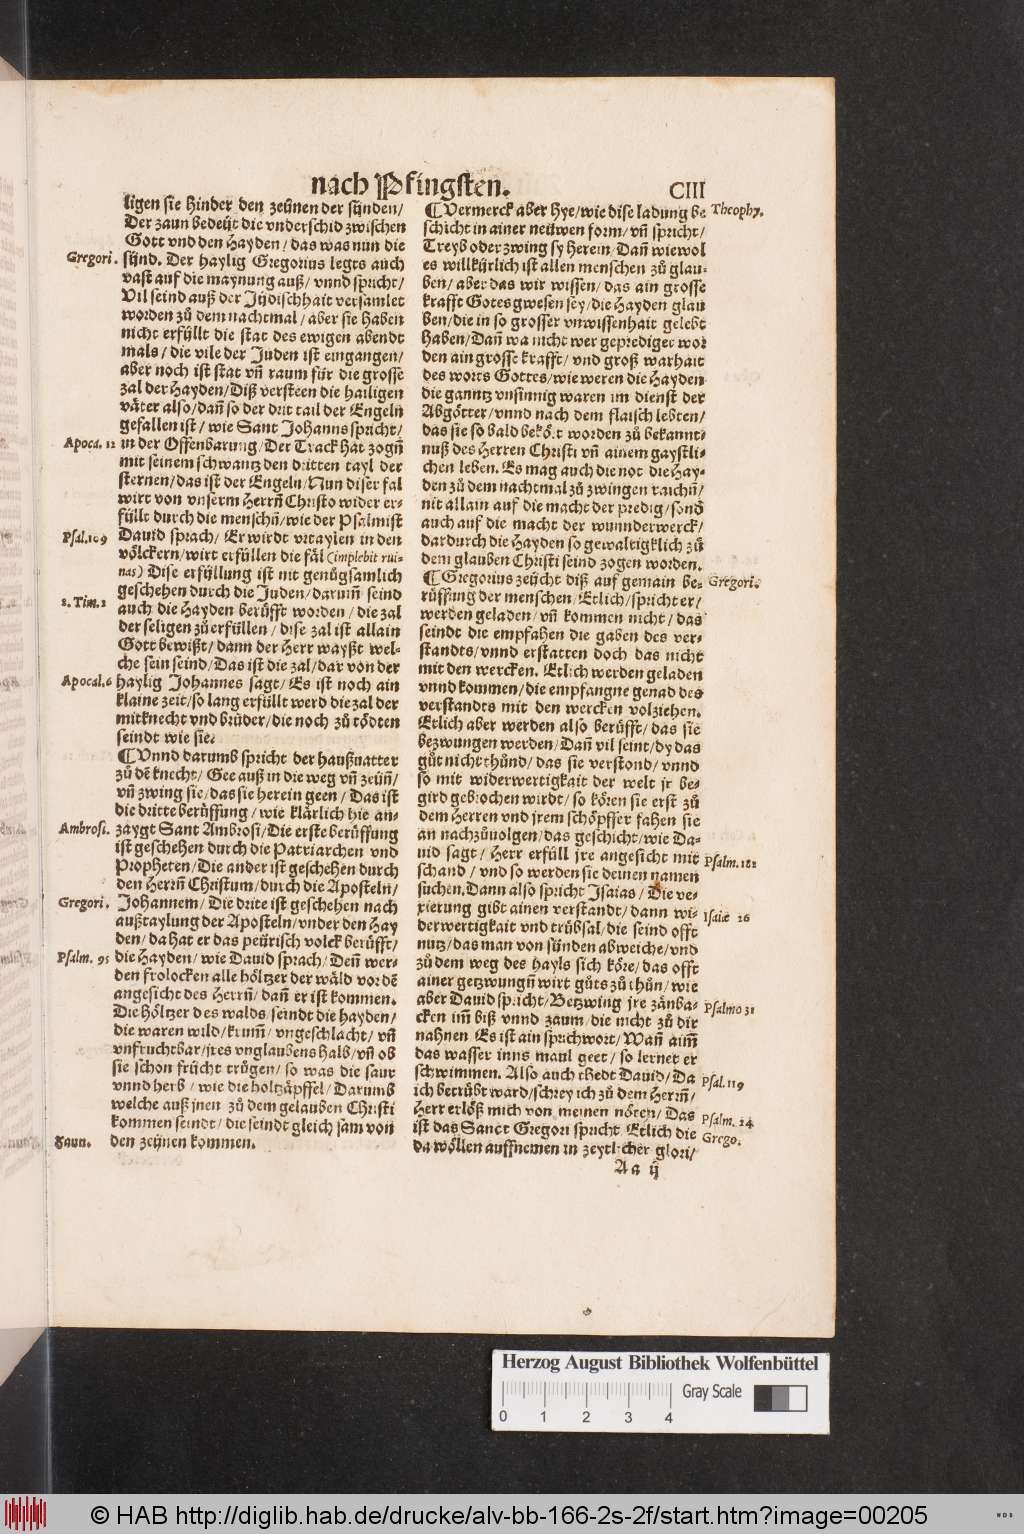 nach Pfingsten.
CIII
ligen sie hinder den zeünen der sünden/
Der zaun bedeüt die vnderschid zwischen
Gott vnd den Hayden/ das was nun die
Gregori.
sünd. Der haylig Gregorius legts auch
vast auf die maynung auß/ vnnd spricht/
Vil seind auß der Jüdischhait versamlet
worden zů dem nachtmal/ aber sie haben
nicht erfüllt die stat des ewigen abendt
mals/ die vile der Juden ist eingangen/
aber noch ist stat vñ raum für die grosse
zal der Hayden/ Diß versteen die hailigen
väter also/ dañ so der drit tail der Engeln
gefallen ist/ wie Sant Johanns spricht/
Apoca. 12
in der Offenbarung/ Der Track hat zogñ
mit seinem schwantz den dritten tayl der
sternen/ das ist der Engeln/ Nun diser fal
wirt von vnserm Herrñ Christo wider er-
füllt durch die menschñ/ wie der Psalmist
Psal. 109
Dauid sprach/ Er wirdt vrtaylen in den
völckern/ wirt erfüllen die fäl (implebit rui-
nas) Dise erfyllung ist nit genůgsamlich
geschehen durch die Juden/ darum̃ seind
2. Tim. 2
auch die Hayden berůfft worden/ die zal
der seligen zů erfüllen/ dise zal ist allain
Gott bewißt/ dann der Herr wayßt wel-
che sein seind/ Das ist die zal/ dar von der
Apocal. 6
haylig Johannes sagt/ Es ist noch ain
klaine zeit/ so lang erfüllt werd die zal der
mitknecht vnd brůder/ die noch zů tödten
seindt wie sie.
¶ Vnnd darumb spricht der haußuatter
zů dẽ knecht/ Gee auß in die weg vñ zeüñ/
vñ zwing sie/ das sie herein geen/ Das ist
die dritte berůffung/ wie klärlich hie an-
Ambrosi.
zaygt Sant Ambrosi/ Die erste berůffung
ist geschehen durch die Patriarchen vnd
Propheten/ Die ander ist geschehen durch
den Herrñ Christum/ durch die Aposteln/
Gregori.
Johannem/ Die drite ist geschehen nach
außtaylung der Aposteln/ vnder den Hay
den/ da hat er das peürisch volck berůfft/
Psalm. 95
die Hayden/ wie Dauid sprach/ Deñ wer-
den frolocken alle höltzer der wäld vor dẽ
angesicht des Herrñ/ dañ er ist kommen.
Die höltzer des walds seindt die hayden/
die waren wild/ krum̃/ vngeschlacht/ vñ
vnfruchtbar/ jres vnglaubens halb/ vñ ob
sie schon frücht trůgen/ so was die saur
vnnd herb/ wie die holtzäpffel/ Darumb
welche auß jnen zů dem gelauben Christi
kommen seindt/ die seindt gleich sam von
Zaun.
den zeünen kommen.
¶ Vermerck aber hye/ wie dise ladung be
Theophy.
schicht in ainer neüwen form/ vñ spricht/
Treyb oder zwing sy herein/ Dañ wiewol
es willkürlich ist allen menschen zů glau-
ben/ aber das wir wissen/ das ain grosse
krafft Gotes gwesen sey/ die Hayden glau
ben/ die in so grosser vnwissenhait gelebt
haben/ Dañ wa nicht wer geprediget wor
den ain grosse krafft/ vnd groß warhait
des worts Gottes/ wie weren die Hayden
die ganntz vnsinnig waren im dienst der
Abgötter/ vnnd nach dem flaisch lebten/
das sie so bald bekört worden zů bekannt-
nuß des Herren Christi vñ ainem gaystli-
chen leben. Es mag auch die not die Hay-
den zů dem nachtmal zů zwingen raichñ/
nit allain auf die macht der predig/ sonđ
auch auf die macht der wunnderwerck/
dardurch die Hayden so gewaltigklich zů
dem glauben Christi seind zogen worden.
¶ Gregorius zeücht diß auf gemain be-
Gregori.
růffung der menschen/ Etlich/ spricht er/
werden geladen/ vñ kommen nicht/ das
seindt die empfahen die gaben des ver-
standts/ vnnd erstatten doch das nicht
mit den wercken. Etlich werden geladen
vnnd kommen/ die empfangne genad des
verstandts mit den wercken volziehen.
Etlich aber werden also berůfft/ das sie
bezwungen werden/ Dañ vil seint/ dy das
gůt nicht thůnd/ das sie verstond/ vnnd
so mit widerwertigkait der welt jr be-
gird gebrochen wirdt/ so kören sie erst zů
dem Herren vnd jrem schöpffer fahen sie
an nachzůuolgen/ das geschicht/ wie Da-
uid sagt/ Herr erfüll jre angesicht mit
Psalm. 182
schand/ vnd so werden sie deinen namen
suchen. Dann also spricht Isaias/ Die ve-
xierung gibt ainen verstandt/ dann wi-
Isaiæ 26
derwertigkait vnd trübsal/ die seind offt
nutz/ das man von sünden abweiche/ vnd
zů dem weg des hayls sich köre/ das offt
ainer getzwungñ wirt gůts zů thůn/ wie
aber Dauid spricht/ Betzwing jre zänba-
Psalmo 31
cken im̃ biß vnnd zaum/ die nicht zů dir
nahnen. Es ist ain sprichwort/ Wañ aim̃
das wasser inns maul geet/ so lernet er
schwimmen. Also auch thedt Dauid/ Da
Psal. 119
ich betrübt ward/ schrey ich zů dem Herrñ/
Herr erlöß mich von meinen nöten/ Das
Psalm. 24
ist das Sanct Gregori spricht. Etlich die
Grego.
da wöllen auffnemen in zeytlicher glori/
Aa ij
Herzog August Bibliothek Wolfenbüttel
Gray Scale
0 1 2 3 4
© HAB http://diglib.hab.de/drucke/alv-bb-166-2s-2f/start.htm?image=00205